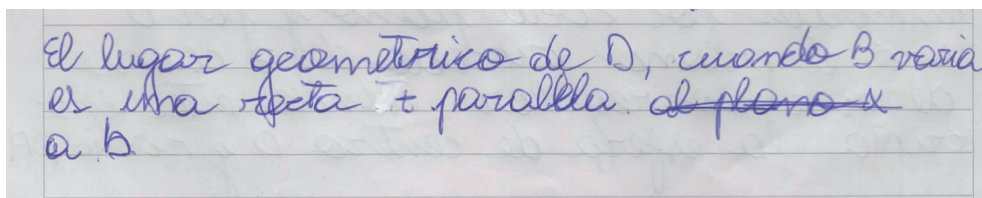 El lugar geometrico de D, cuando B varia
es una recta t parallela al plano α
a b